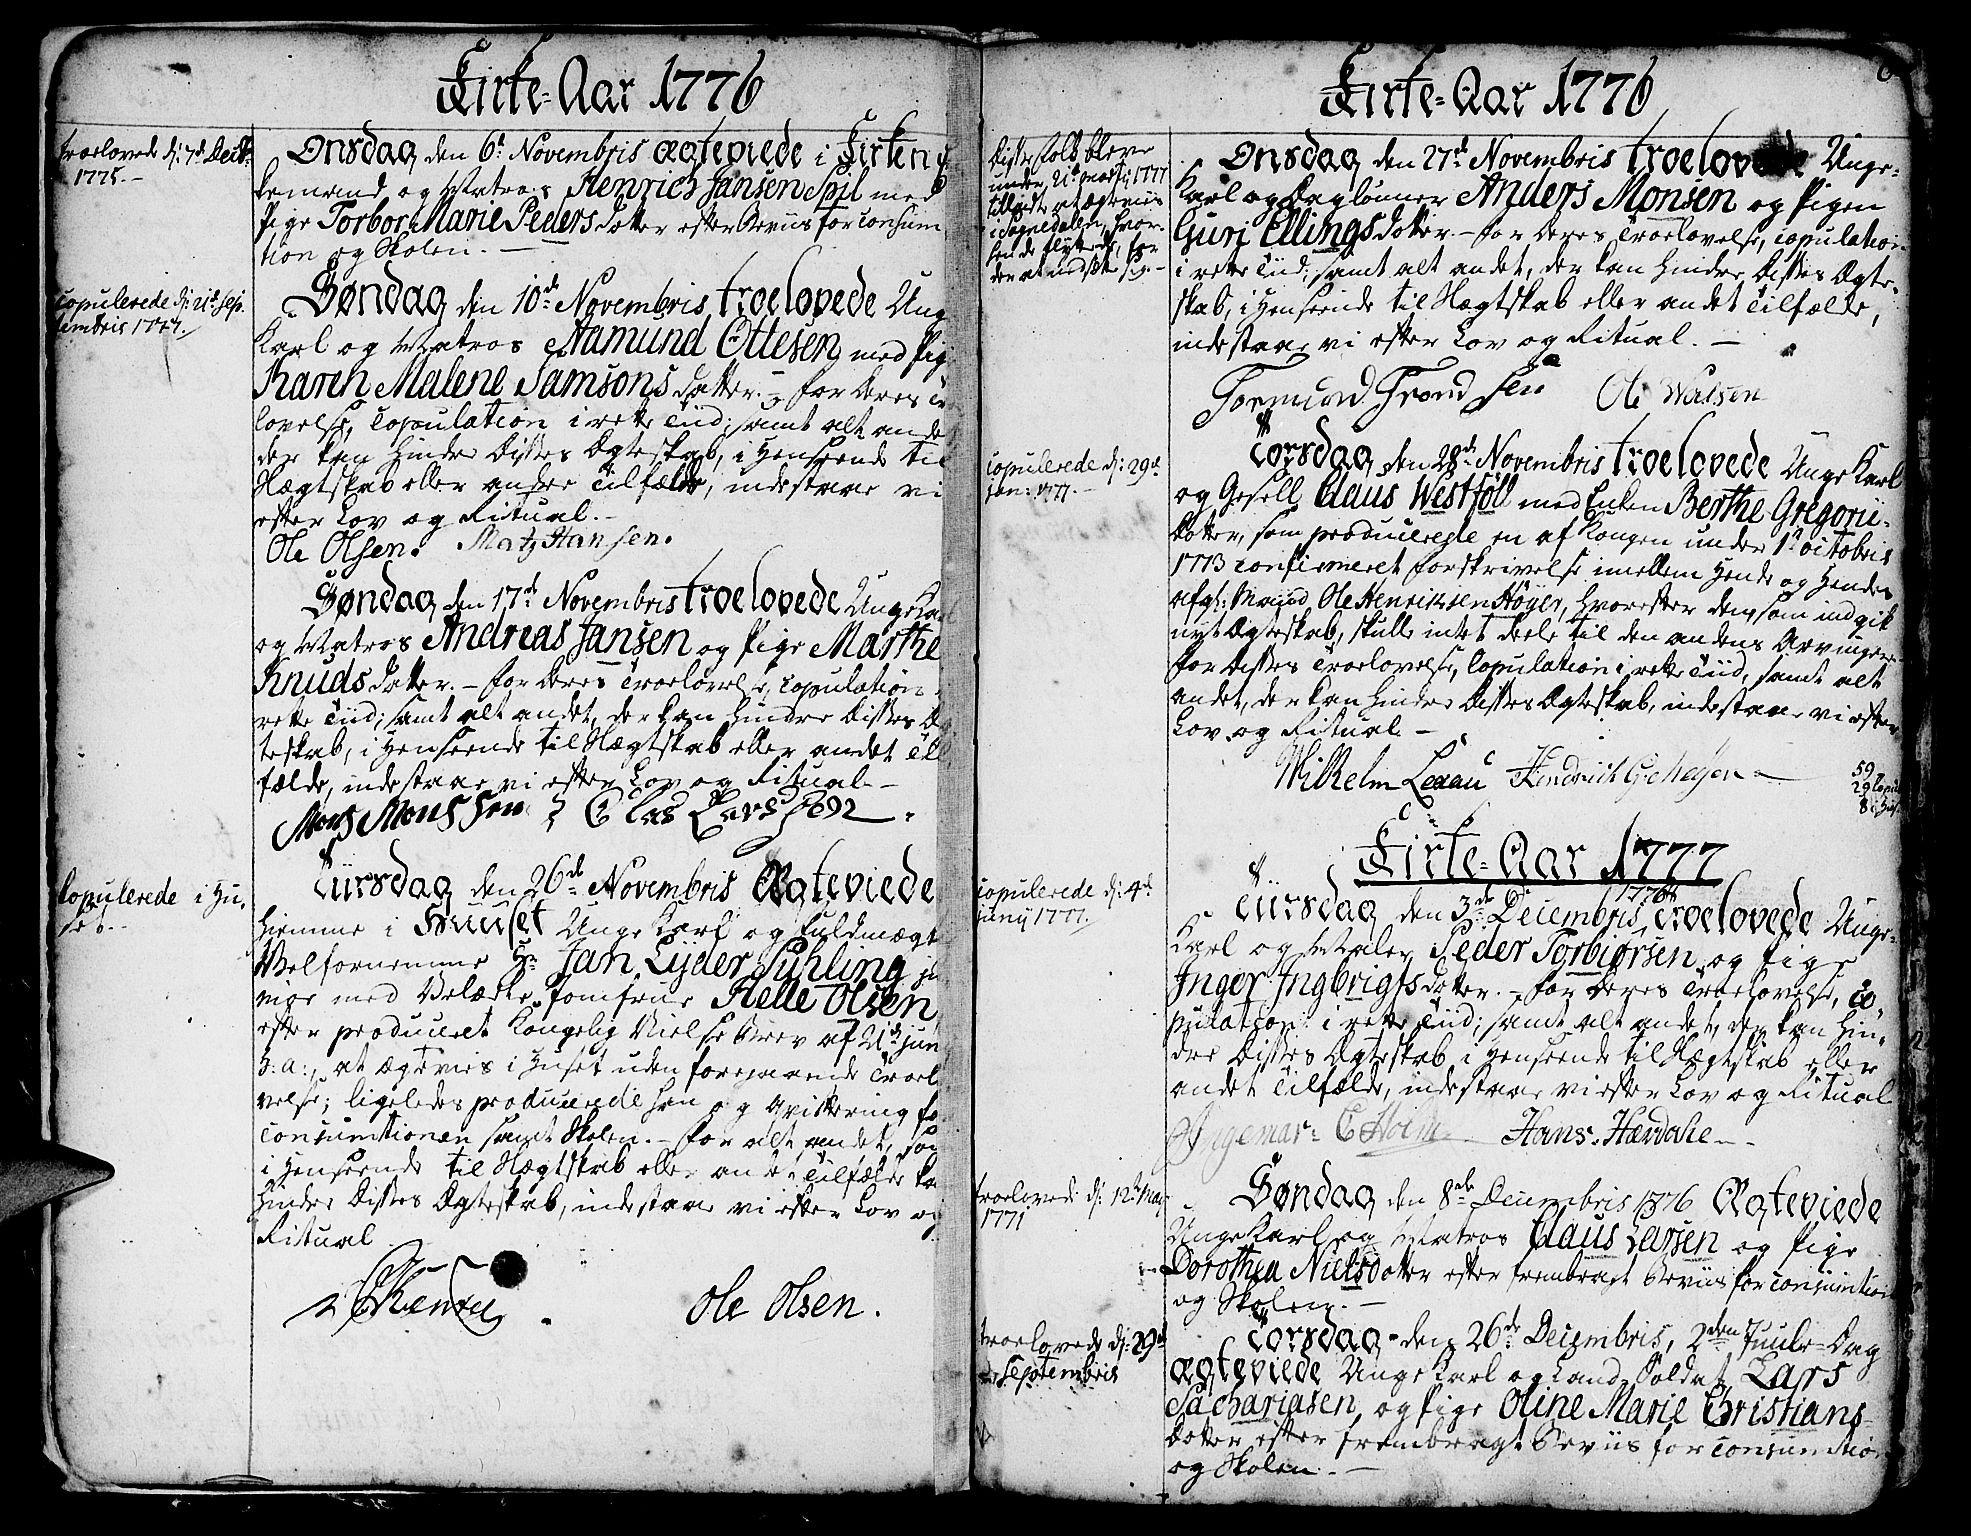 Kirke-Aar 1776
troelovede d: 7de Decb:
1775.-
Onsdag den 6te Novembris ægteviede i Kirken
kemand og Matros Henrich Jansen Spil med
Pige Torbor Marie Peders Dotter efter Beviis for Consum
tion og Skolen.-
Copulerede d: 21de Sep-
tembris 1777.
Søndag den 10de Novembris troelovede Unge
Karl og Matros Aamund Ottesen med Pig
Karen Malene Samsons Datter.- for deres Tr
lovelse, Copulation i rette Tiid; samt alt ande
der kan hindre disses Ægteskab, i Henseende til
Slægtskab eller andre Tilfælde, indestaae vi
efter Lov og Ritual.-
Ole Olsen. Matz Hansen.
Søndag den 17de Novembris troelovede Unge Kar
og Matros Andreas Jansen og Pige Marthe
Knuds Datter.- for deres Troelovelse, Copulation
rette Tiid; samt alt andet, der kan hindre disses Æg
teskab, i Henseende til Slægtskab eller andet Til
fælde, indestaae vi efter Lov og Ritual.-
Mons Monssen Clas Larssen.
Copulerede i Hu-
set.-
Tiirsdag den 26de Novembris Ægteviede
hiemme i Huuset Unge Karl og Fuldmægt
Velfornemme Hr Jan Lyder Suhling ju
nior med Velædle Jomfrue Helle Olsen
efter produceret Kongelig Vielse Brev af 21de Juni
h: a:, at ægtevies i Huset uden foregaaende Troel
velse; ligeledes producerede han og Qvittering for
Consumtionen samt Skolen.- for alt andet, som
i Henseende til Slægtskab eller andet Tilfælde ka
hindre disses Ægteskab, indestaae vi efter Lov og
Ritual
Ole Olsen.
Kirke-Aar 1776
Disse Folk bleve
under 21de Martij 1777
tilladte at ægtevies
i Sognedalen, hvor-
hen de flytede, for
der at nedsette sig.-
Onsdag den 27de Novembris troelovede Unge-
Karl og Daglønner Anders Monsen og Pigen
Guri Ellings Dotter.- for deres Troelovelse, Copulation
i rette Tiid; samt alt andet, der kan hindre disses Ægte-
skab, i Henseende til Slægtskab eller andet Tilfælde,
indestaae vi efter Lov og Ritual.-
Tormund Trondsen Ole
Copulerede d: 29de
Jan: 1777.-
Torsdag den 28de Novembris troelovede Unge Karl
og Gesell Claus Westføll med Enken Berthe Gregorii-
Dotter, som producerede en af Kongen under 1te Octobris
1773 confirmeret Forskrivelse imellem Hende og Hendes
afg: Mand Ole Henriksen Høyer, hvorefter den, som indgik
nyt Ægteskab, skulle intet deele til den andens Arvinger-
for disses Troelovelse, Copulation i rette Tiid, samt alt
andet, der kan hindre disses Ægteskab, indestaae vi efter
Lov og Ritual.-
Wilhelm Hendrich
59
29 Copul
8 i Hus
Kirke-Aar 1777
Copulerede d: 4de
Junij 1777.
1776
Tiirsdag den 3de Decembris, troelovede Unge-
Karl og Maler Peder Torbiørsen og Pige
Inger Ingbrigts Dotter.- for deres Troelovelse, Co-
pulation i rette Tiid; samt alt andet, der kan hin-
dre disses Ægteskab i Henseende til Slægtskab eller
andet Tilfælde, indestaae vi efter Lov og Ritual
Ingemar C Holm Hans Hærdahl
troelovede d: 12te Maj
1771
Søndag den 8de Decembris 1776 Ægteviede
Unge Karl og Matros Claus Larsen og Pige
Dorothea Nielsdotter efter frembragt Beviis for Consumtion
og Skolen.-
troelovede d: 29de
Septembris
Torsdag den 26de Decembris, 2den Juule-Dag
ægteviede Unge Karl og Land Soldat Lars
Sachariasen og Pige Oline Marie Christians-
dotter efter frembragt Beviis for Consumtion
og Skolen.-